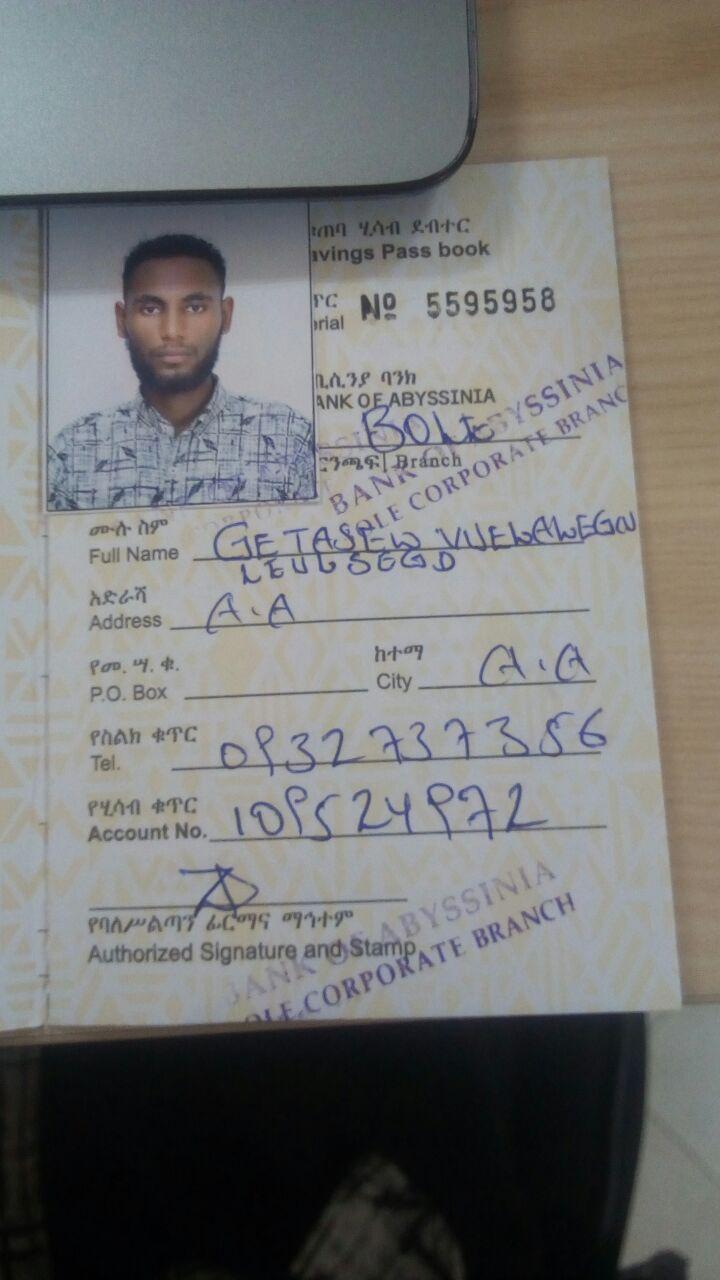 ጠባ ሂሳብ ደብተር
avings Pass book
ጥር
erial № 5595958
ቢሲንያ ባንክ
ANK OF ABYSSINIA
BOLE
Branch
BANK OF ABYSSINIA
OLE CORPORATE BRANC
ሙሉ ስም
Full Name GETASEW
LEULSEGD
አድራሻ
Address A.A
የመ. ሣ. ቁ. ከተማ
P.O. Box City A.A
የስልክ ቁጥር
Tel. 0932737356
የሂሳብ ቁጥር
Account No. 109524972
የባለሥልጣን ፊርማና ማኅተም
Authorized Signature and Stamp
BANK OF ABYSSINIA
OLE CORPORATE BRANCH